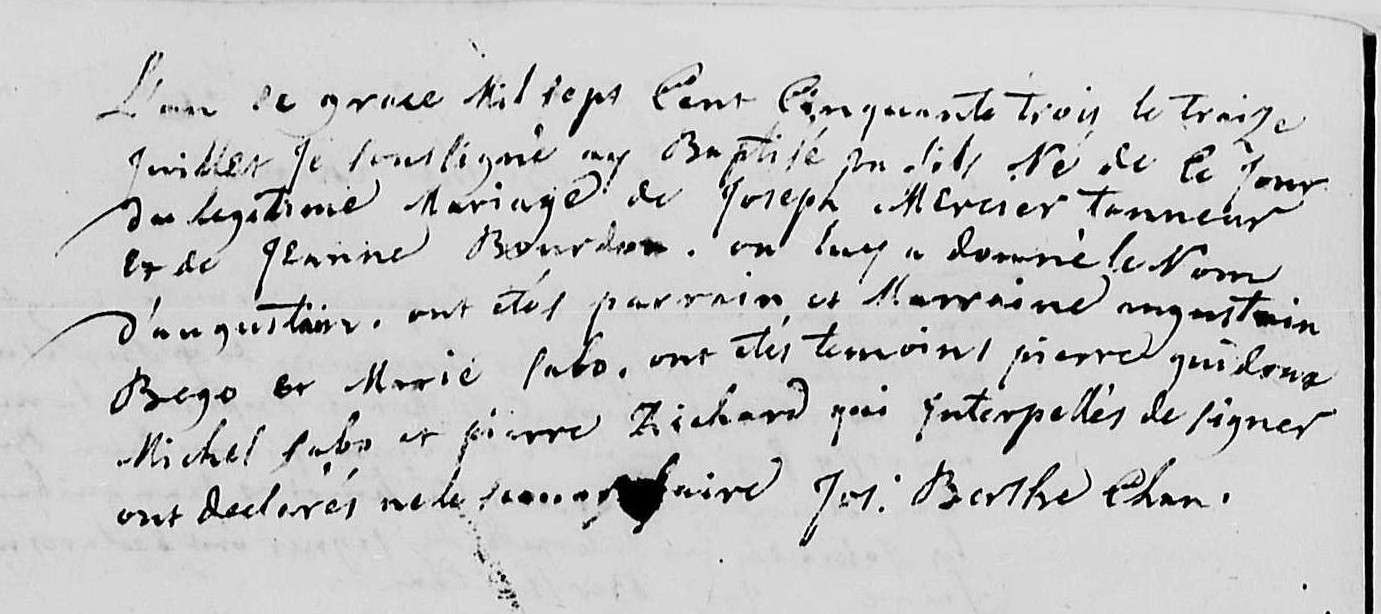 L'an de grace Mil sept Cent Cinquante trois le traize
juillet Je sousigné ay Baptisé un fils Né de Ce jour
du legitime Mariage de Joseph Mercier tanneur
et de Jeanne Bourdon. on luy a donné le Nom
d'augustain. ont étés parrain et Marraine augustain
Bego et Marie sabo. ont étés temoins pierre guidoux
Michel sabo et pierre Richard qui jnterpellés de signer
ont declarés ne le faire Jos: Berthe Chan.